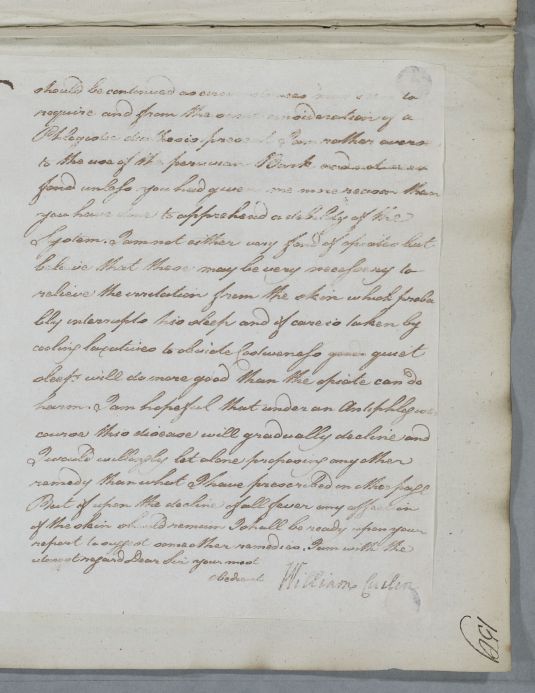 should be continued as circumstances may seem to
require and from the same consideration of a
Phlogistic diathesis present I am rather averse
to the use of the peruvian Bark
fond unless you had given me more reason than
you have done to apprehend a debility of the
System. I am not either very fond of opiates but
beleive that these may be very necessary to
relieve the irritation from the skin which proba
bly interrupts his sleep and if care is taken by
cooling laxatives to obviate Costiveness quiet
sleeps will do more good than the opiate can do
harm. I am hopeful that under an Antiphlogistic
course this disease will gradually decline and
I would willingly let alone proposing any other
remedy than what I have prescribed in this page
But if upon the decline of all fever any affection
of the skin should remain I shall be ready upon your
report to suggest some other remedies. I am with the
utmost regard Dear Sir your most
obedient William Cullen